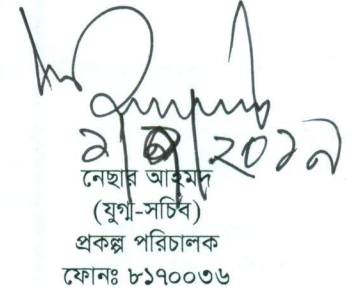 নেছার আহমদ
(যুগ্ম-সচিব)
প্রকল্প পরিচালক
ফোনঃ ৮১৭০০৩৬